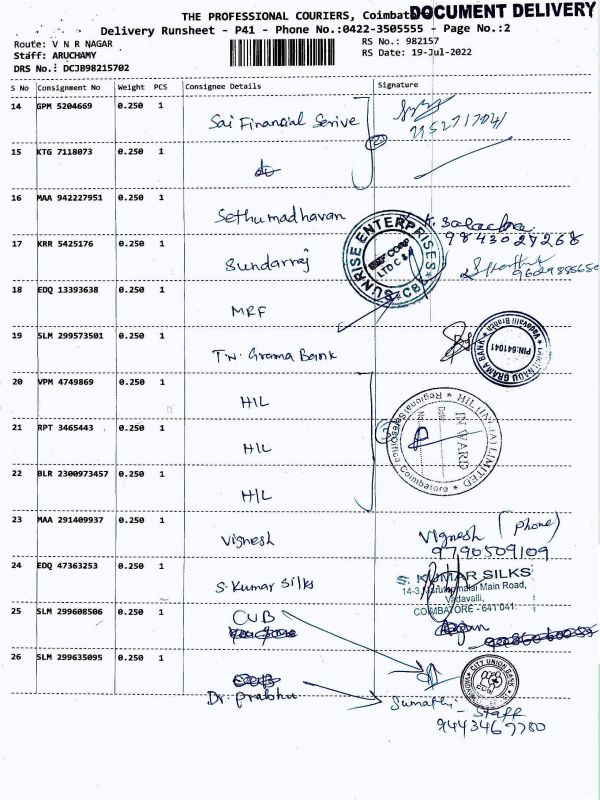 DOCUMENT DELIVERY
THE PROFESSIONAL COURIERS, Coimbato
Delivery Runsheet - P41 - Phone No.:0422-3505555 - Page No.:2
Route: V N R NAGAR RS No.: 982157
Staff: ARUCHAMY RS Date: 19-Jul-2022
DRS No.: DCJB98215702
S No Consignment No Weight PCS Consignee Details Signature
14 GPM 5204669 0.250 1 Sai Financial Serive
15 KTG 7118073 0.250 1 do
16 MAA 942227951 0.250 1 Sethumadhavan
17 KRR 5425176 0.250 1 Sundarraj
SUNRISE ENTERPRISES
18 EDQ 13393638 0.250 1 MRF
19 SLM 299573501 0.250 1 TN. Grama Bank
TAMIL NADU GRAMA BANK
Vadavalli Branch
PIN:641041
20 VPM 4749869 0.250 1 HIL
21 RPT 3465443 0.250 1 HIL
HIL (INDIA) LIMITED
IN WARD
Date
No.
Regional Sales Office
Coimbatore
22 BLR 2300973457 0.250 1 HIL
23 MAA 291409937 0.250 1 Vignesh Vignesh (Phone)
9790509109
24 EDQ 47363253 0.250 1 S. Kumar Silks
S. KUMAR SILKS
Main Road,
Vadavalli,
COIMBATORE - 641 041.
25 SLM 299608506 0.250 1 CUB
26 SLM 299635095 0.250 1
CITY UNION BANK
Dr. Prabhu Sumathi - Staff